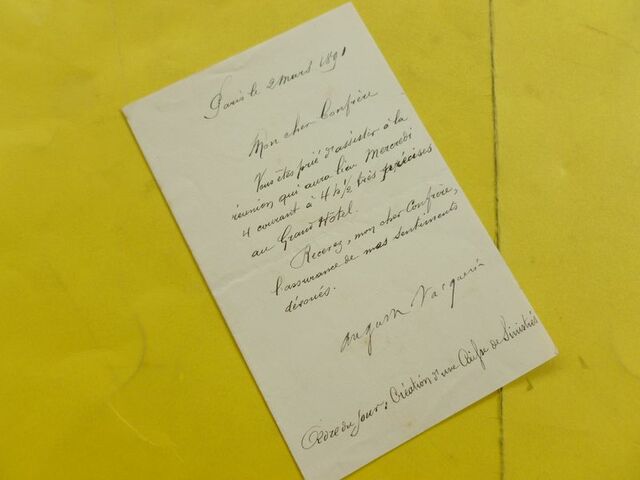 Paris le 2 mars 1891
Mon cher Confrère
Vous êtes prié d'assister à la
réunion qui aura lieu Mercredi
4 courant à 4 h 1/2 très précises
au Grand Hôtel.
Recevez, mon cher Confrère,
l'assurance de mes sentiments
dévoués.
Auguste Vacquerie
Ordre du jour: Création d'une Caisse de Sinistrés